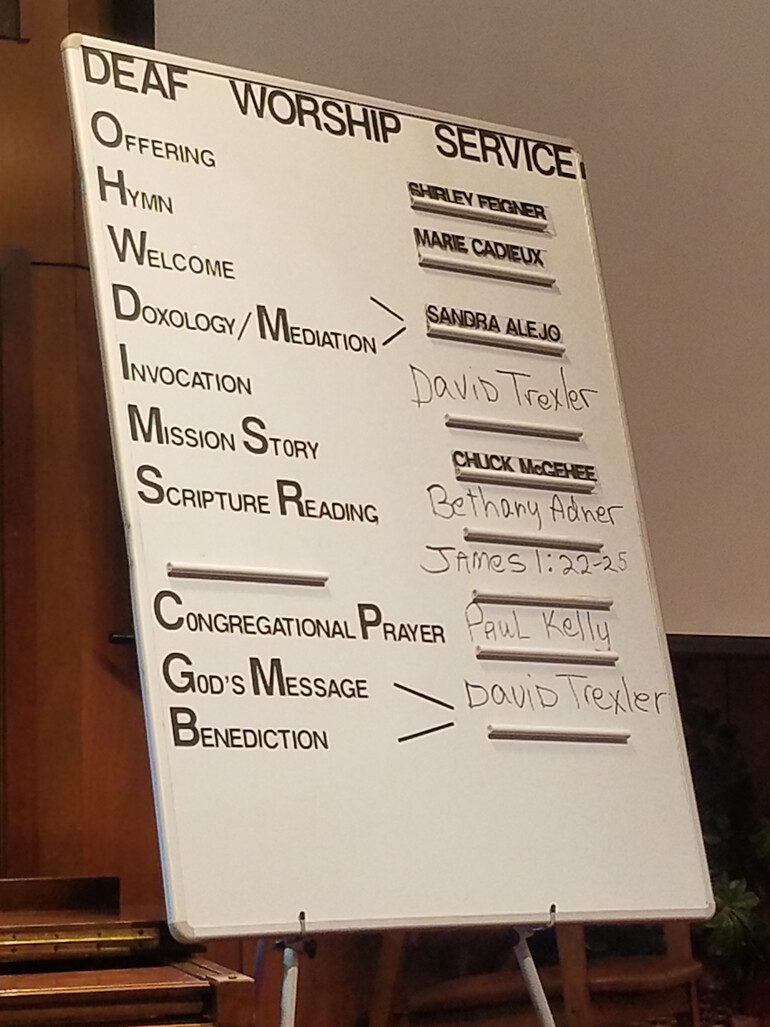 DEAF WORSHIP SERVICE:
OFFERING SHIRLEY FEIGNER
HYMN MARIE CADIEUX
WELCOME
DOXOLOGY/MEDIATION SANDRA ALEJO
INVOCATION David Trexler
MISSION STORY CHUCK McGEHEE
SCRIPTURE READING Bethany Adner
JAMES 1:22-25
CONGREGATIONAL PRAYER Paul Kelly
GOD'S MESSAGE David Trexler
BENEDICTION